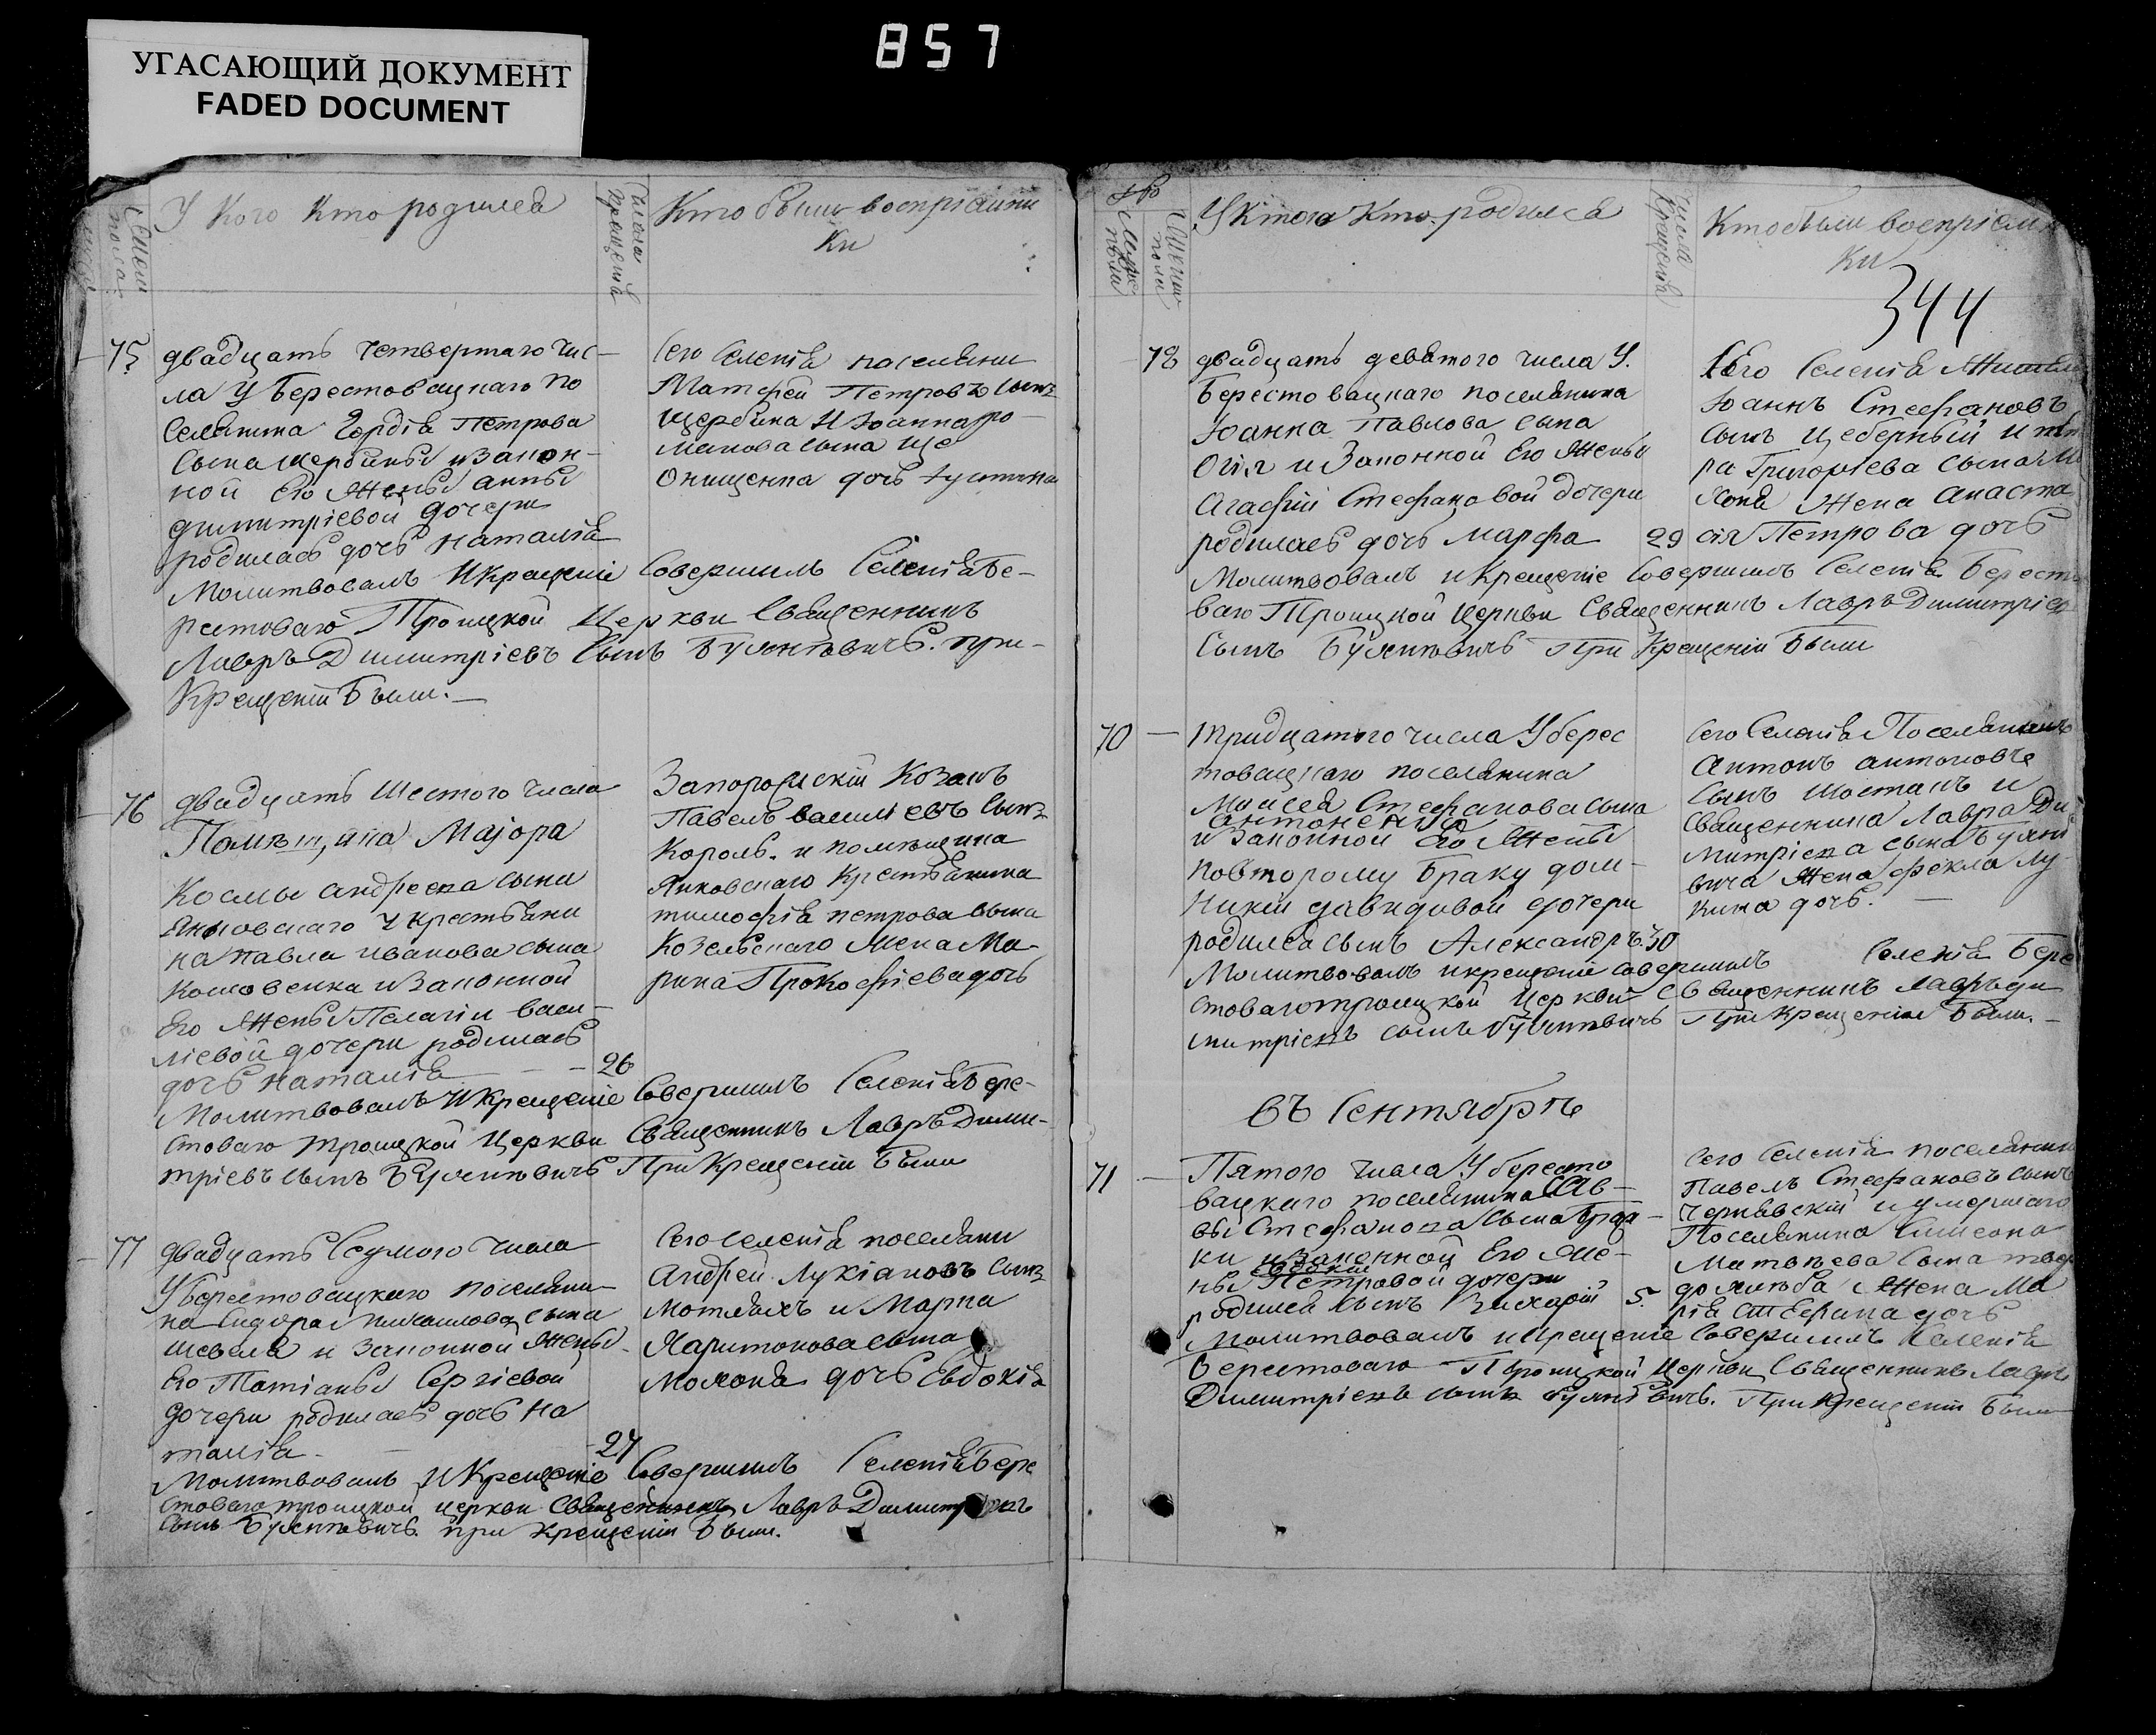 857
УГАСАЮЩИЙ ДОКУМЕНТ
FADED DOCUMENT
У Кого Кто родился
Числа Крещенія
Кто были воспріемни
ки
75
двадцать четвертаго чис-
ла У Берестовацкаго по
селянина Гордія Петрова
сына щербины и закон-
ной Его жены анны
димитріевой дочери
родилась дочь наталія
сего селенія поселяни
Матфей Петровъ сынъ
щербина и Іоанна ро
манова сына
Онищенка дочь
Молитвовалъ И Крещеніе Совершилъ Селенія Бе-
рестоваго Троицкой Церкви Священникъ
Лавръ Димитріевъ сынъ Булятовичъ. при-
Крещеніи Были.
76
двадцать шестого числа
Помѣщика Маіора
Космы андреева сына
Янковскаго У крестьяни
на павла иванова сына
и законной
Его жены Пелагіи васи-
ліевой дочери родилась
дочь наталія
26
Запорожскій Козакъ
Павелъ василіевъ сынъ
Король. и помѣщика
Янковскаго Крестьянина
тимофія петрова сына
Козельскаго жена Ма-
рина Прокофіева дочь
Молитвовалъ И Крещеніе Совершилъ Селенія Бере-
стоваго троицкой Церкви Священникъ Лавръ Дими-
тріевъ сынъ Булятовичъ При Крещеніи Были
77
двадцать Седмого числа
У берестовацкаго поселяни-
на Сидора михаилова сына
шевеля и законной жены
Его Татіаны Сергіевой
дочери родилась дочь на
талія
27
Сего селенія поселяни
Андрей Лукіановъ сынъ
мотляхъ и Марка
Харитонова сына
Молока дочь Евдокія
Молитвовалъ И Крещеніе Совершилъ Селенія Бере
стоваго троицкой церкви Священникъ Лавръ Димитріевъ
сынъ Булятовичъ. при Крещеніи Были.
344
У Кого Кто родился
Числа Крещенія
Кто были воспріем
ки
78
двадцать девятого числа У.
Берестовацкаго поселянина
Іоанна Павлова сына
и Законной Его жены
Агафіи Стефановой дочери
родилась дочь Марфа
29
Сего Селенія
Іоаннъ Стефановъ
сынъ
Григоріева сына
жена анаста
сія Петрова дочь
Молитвовалъ и Крещеніе Совершилъ Селенія Бересто
ваго Троицкой Церкви Священникъ Лавръ Димитріев
сынъ Булятовичъ При Крещеніи Были
70
тридцатого числа У берес
товацкаго поселянина
Моисея Стефанова сына
антоненка
и Законной Его жены
повторому Браку дом-
никіи давидовой дочери
родился сынъ Александръ.
30
Сего Селенія Поселянинъ
Антонъ антоновъ
сынъ шостакъ и
Священника Лавра Ди
митріева сына Булят
вича жена фекла лу
кина дочь.
Молитвовалъ и крещеніе совершилъ Селенія Бере
стоваго троицкой церкви Священникъ лавръ ди
митріевъ сынъ Булятовичъ При Крещеніи Были.
Въ Сентябрѣ
71
Пятого числа У бересто
вацкаго поселянина Сав-
вы Стефанова сына
ки и Законной Его же-
ны евдокіи
Петровой дочери
родился сынъ Захарій
5.
Сего Селенія поселянин
Павелъ Стефановъ сынъ
Чернявскій и умершаго
Поселянина Симеона
Матвѣева сына твер
дохлѣба жена Ма
рія дочь
Молитвовалъ и Крещеніе Совершилъ Селенія
Берестоваго Троицкой Церкви Священникъ Лавръ
Димитріевъ сынъ Булятовичъ. При Крещеніи Были